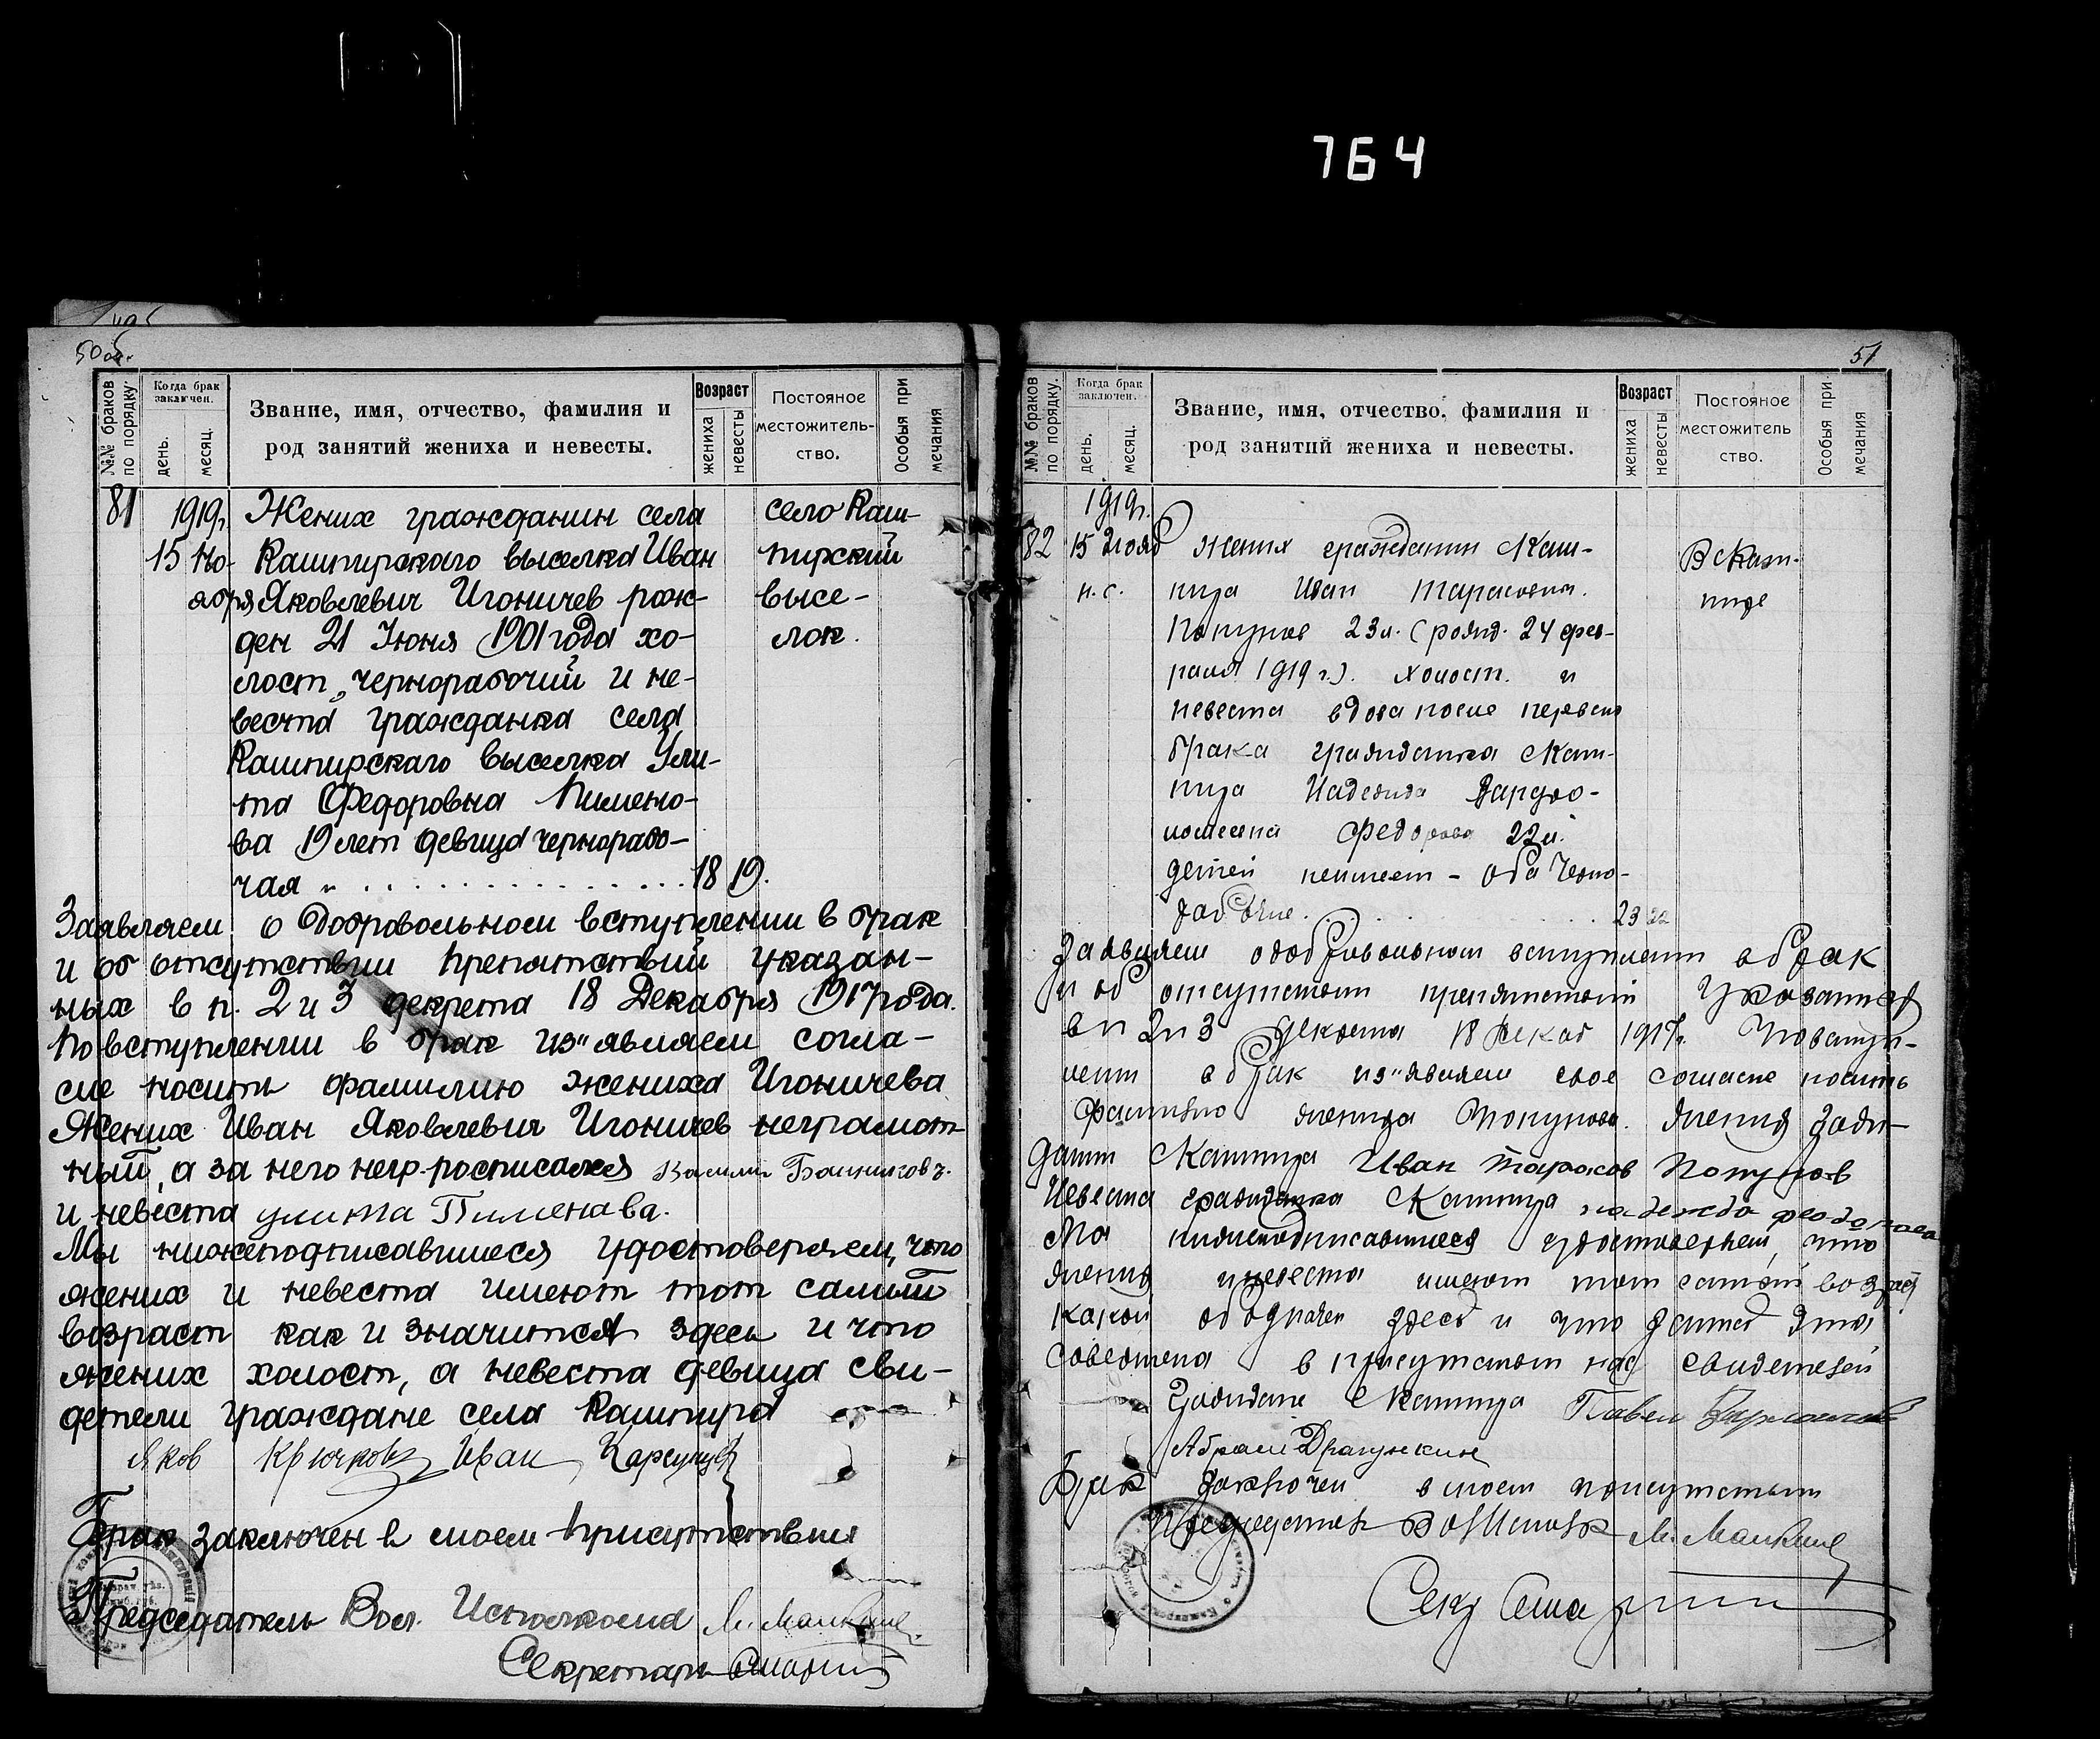 764
50 об.
№№ браков по порядку.
Когда брак заключен.
день.
месяц.
Звание, имя, отчество, фамилия и
род занятий жениха и невесты.
Возраст
жениха
невесты
Постояное
местожитель-
ство.
Особыя при
мечания
81 1919г. Жених гражданин села село Каш-
15 Но- Кашпирскаго выселка Иван пирский
ября Яковлевич Игоничев рож- высе-
ден 21 Июня 1901 года хо- лок.
лост, чернорабочий и не-
веста гражданка села
Кашпирскаго выселка Ули-
та Федоровна Пимено-
ва 19 лет девица чернорабо-
чая 18 19.
Заявляем о добровольном вступлении в брак
и об отсутствии препятствий указан-
ных в п. 2 и 3 декрета 18 Декабря 1917 года.
По вступлении в брак из"являем согла-
сие носить фамилию жениха Игоничева
Жених Иван Яковлевич Игоничев неграмот-
ный, а за него негр. росписался Василий Банников
и невеста улита Пименава.
Мы нижеподписавшиеся удостоверяем, что
жених и невеста имеют тот самый
возраст как и значится здесь и что
жених холост, а невеста девица сви-
детели граждане села Кашпира
Яков Крючков Иван Карсунцев
Брак заключен в моем присутствии
Председатель Вол. Исполкома М. Манкине
Секретарь
51
№№ браков по порядку.
Когда брак заключен.
день.
месяц.
Звание, имя, отчество, фамилия и
род занятий жениха и невесты.
Возраст
жениха
невесты
Постояное
местожитель
ство.
Особыя при
мечания
1919г.
82 15 Нояб жених гражданин с Каш- В с Каш-
н. с. пира Иван Тарасович пире
23 л. (рожд. 24 фев-
раля 1919 г.). холост. и
невеста вдова после перваго
брака гражданка с Каш-
пира Надежда
Федорова 22 л.
детей неимеет - оба Черно-
рабочие. 23 22
Заявляем о добровольном вступлении в брак
и об отсутствии препятствий Указанных
в п 2 и 3 декрета 18 декаб 1917г. По вступ-
лении в брак из"являем свое согласие носить
фамилию жениха Жених Гражд-
с Кашпира Иван Тарасов
Невеста гражданка с Кашпира надежда феодорова
Мы нижеподписавшиеся удостоверяем, что
жених и невеста имеют тот самый возраст
какой обозначен здесь и что запись эта
совершена в присутствии нас свидетелей
Граждане с Кашпира Павел
Абрам Драгункин
Брак заключен в моем присутствии
Председатель Вол Исполк М. Манкине
Секр